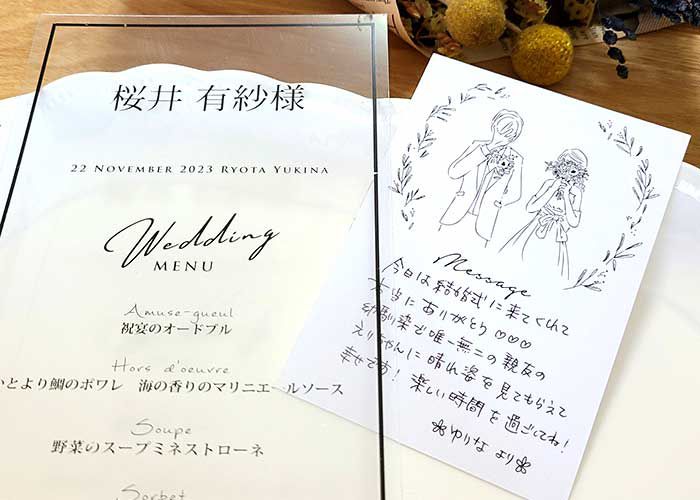 桜井 有紗様
22 November 2023 Ryota Yukina
Wedding
MENU
Amuse-gueul
祝宴のオードブル
Hors d'oeuvre
いとより鯛のポワレ 海の香りのマリニエールソース
Soupe
野菜のスープミネストローネ
Sorbet
Message
今日は結婚式に来てくれて
本当にありがとう♡♡♡
幼馴染で唯一無二の親友の
えりちゃんに晴れ姿を見てもらえて
幸せです！楽しい時間を過ごしてね！
ゆりなより